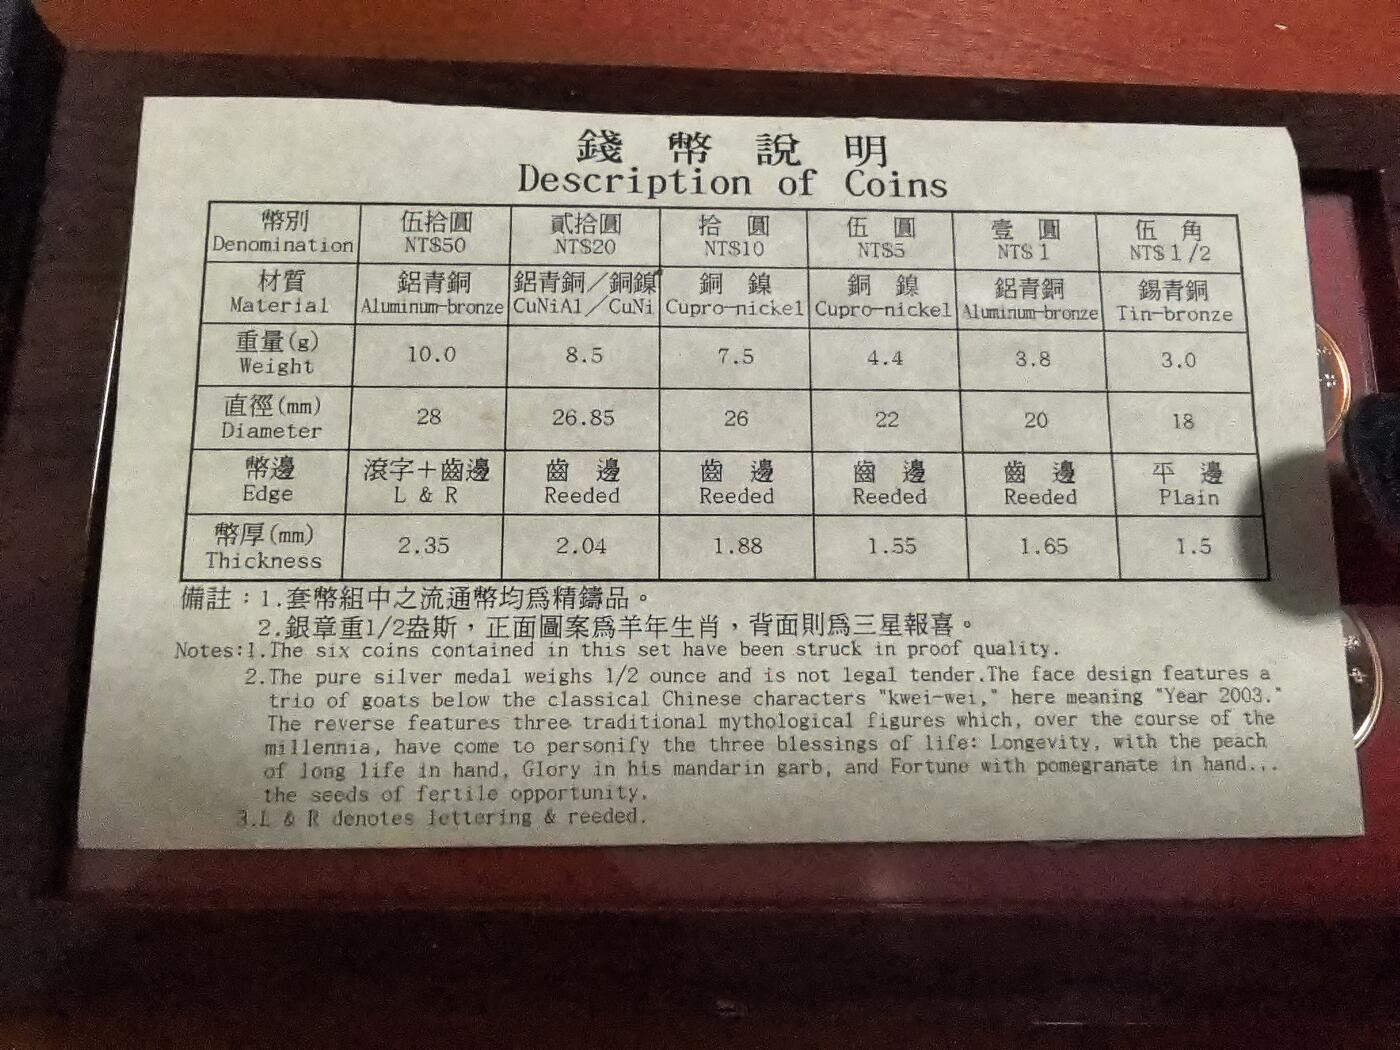 錢幣說明
Description of Coins
幣別 伍拾圓 貳拾圓 拾圓 伍圓 壹圓 伍角
Denomination NT$50 NT$20 NT$10 NT$5 NT$1 NT$1/2
材質 鋁青銅 鋁青銅／銅鎳 銅鎳 銅鎳 鋁青銅 錫青銅
Material Aluminum-bronze CuNiAl／CuNi Cupro-nickel Cupro-nickel Aluminum-bronze Tin-bronze
重量(g)
Weight 10.0 8.5 7.5 4.4 3.8 3.0
直徑(mm)
Diameter 28 26.85 26 22 20 18
幣邊 滾字＋齒邊 齒邊 齒邊 齒邊 齒邊 平邊
Edge L & R Reeded Reeded Reeded Reeded Plain
幣厚(mm)
Thickness 2.35 2.04 1.88 1.55 1.65 1.5
備註：1.套幣組中之流通幣均爲精鑄品。
2.銀章重1/2盎斯，正面圖案爲羊年生肖，背面則爲三星報喜。
Notes:1.The six coins contained in this set have been struck in proof quality.
2.The pure silver medal weighs 1/2 ounce and is not legal tender.The face design features a
trio of goats below the classical Chinese characters "kwei-wei," here meaning "Year 2003."
The reverse features three traditional mythological figures which, over the course of the
millennia, have come to personify the three blessings of life: Longevity, with the peach
of long life in hand, Glory in his mandarin garb, and Fortune with pomegranate in hand...
the seeds of fertile opportunity.
3.L & R denotes lettering & reeded.